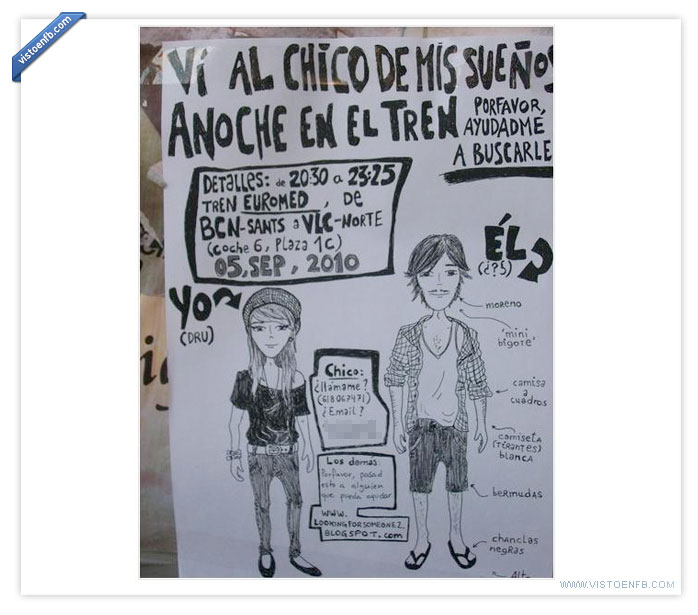 vistoenfb.com
Vi AL CHICO DE MIS SUEÑOS
ANOCHE EN EL TREN
PORFAVOR,
AYUDADME
A BUSCARLE
DETALLES: de 20:30 a 23:25
TREN EUROMED, DE
BCN-SANTS a VLC-NORTE
(COCHE 6, PLAZA 1C)
05, SEP, 2010
YO
(DRU)
ÉL
(¿?)
moreno
'mini
bigote'
camisa
a
cuadros
camiseta
(TiRANTES)
blanca
bermudas
chanclas
negras
Alto
Chico:
¿llámame?
¿Email?
Los demas:
Porfavor, pasad
esto a alguien
que pueda ayudar
WWW.
LOOKINGFORSOMEONE2.
BLOGSPOT.com
WWW.VISTOENFB.COM